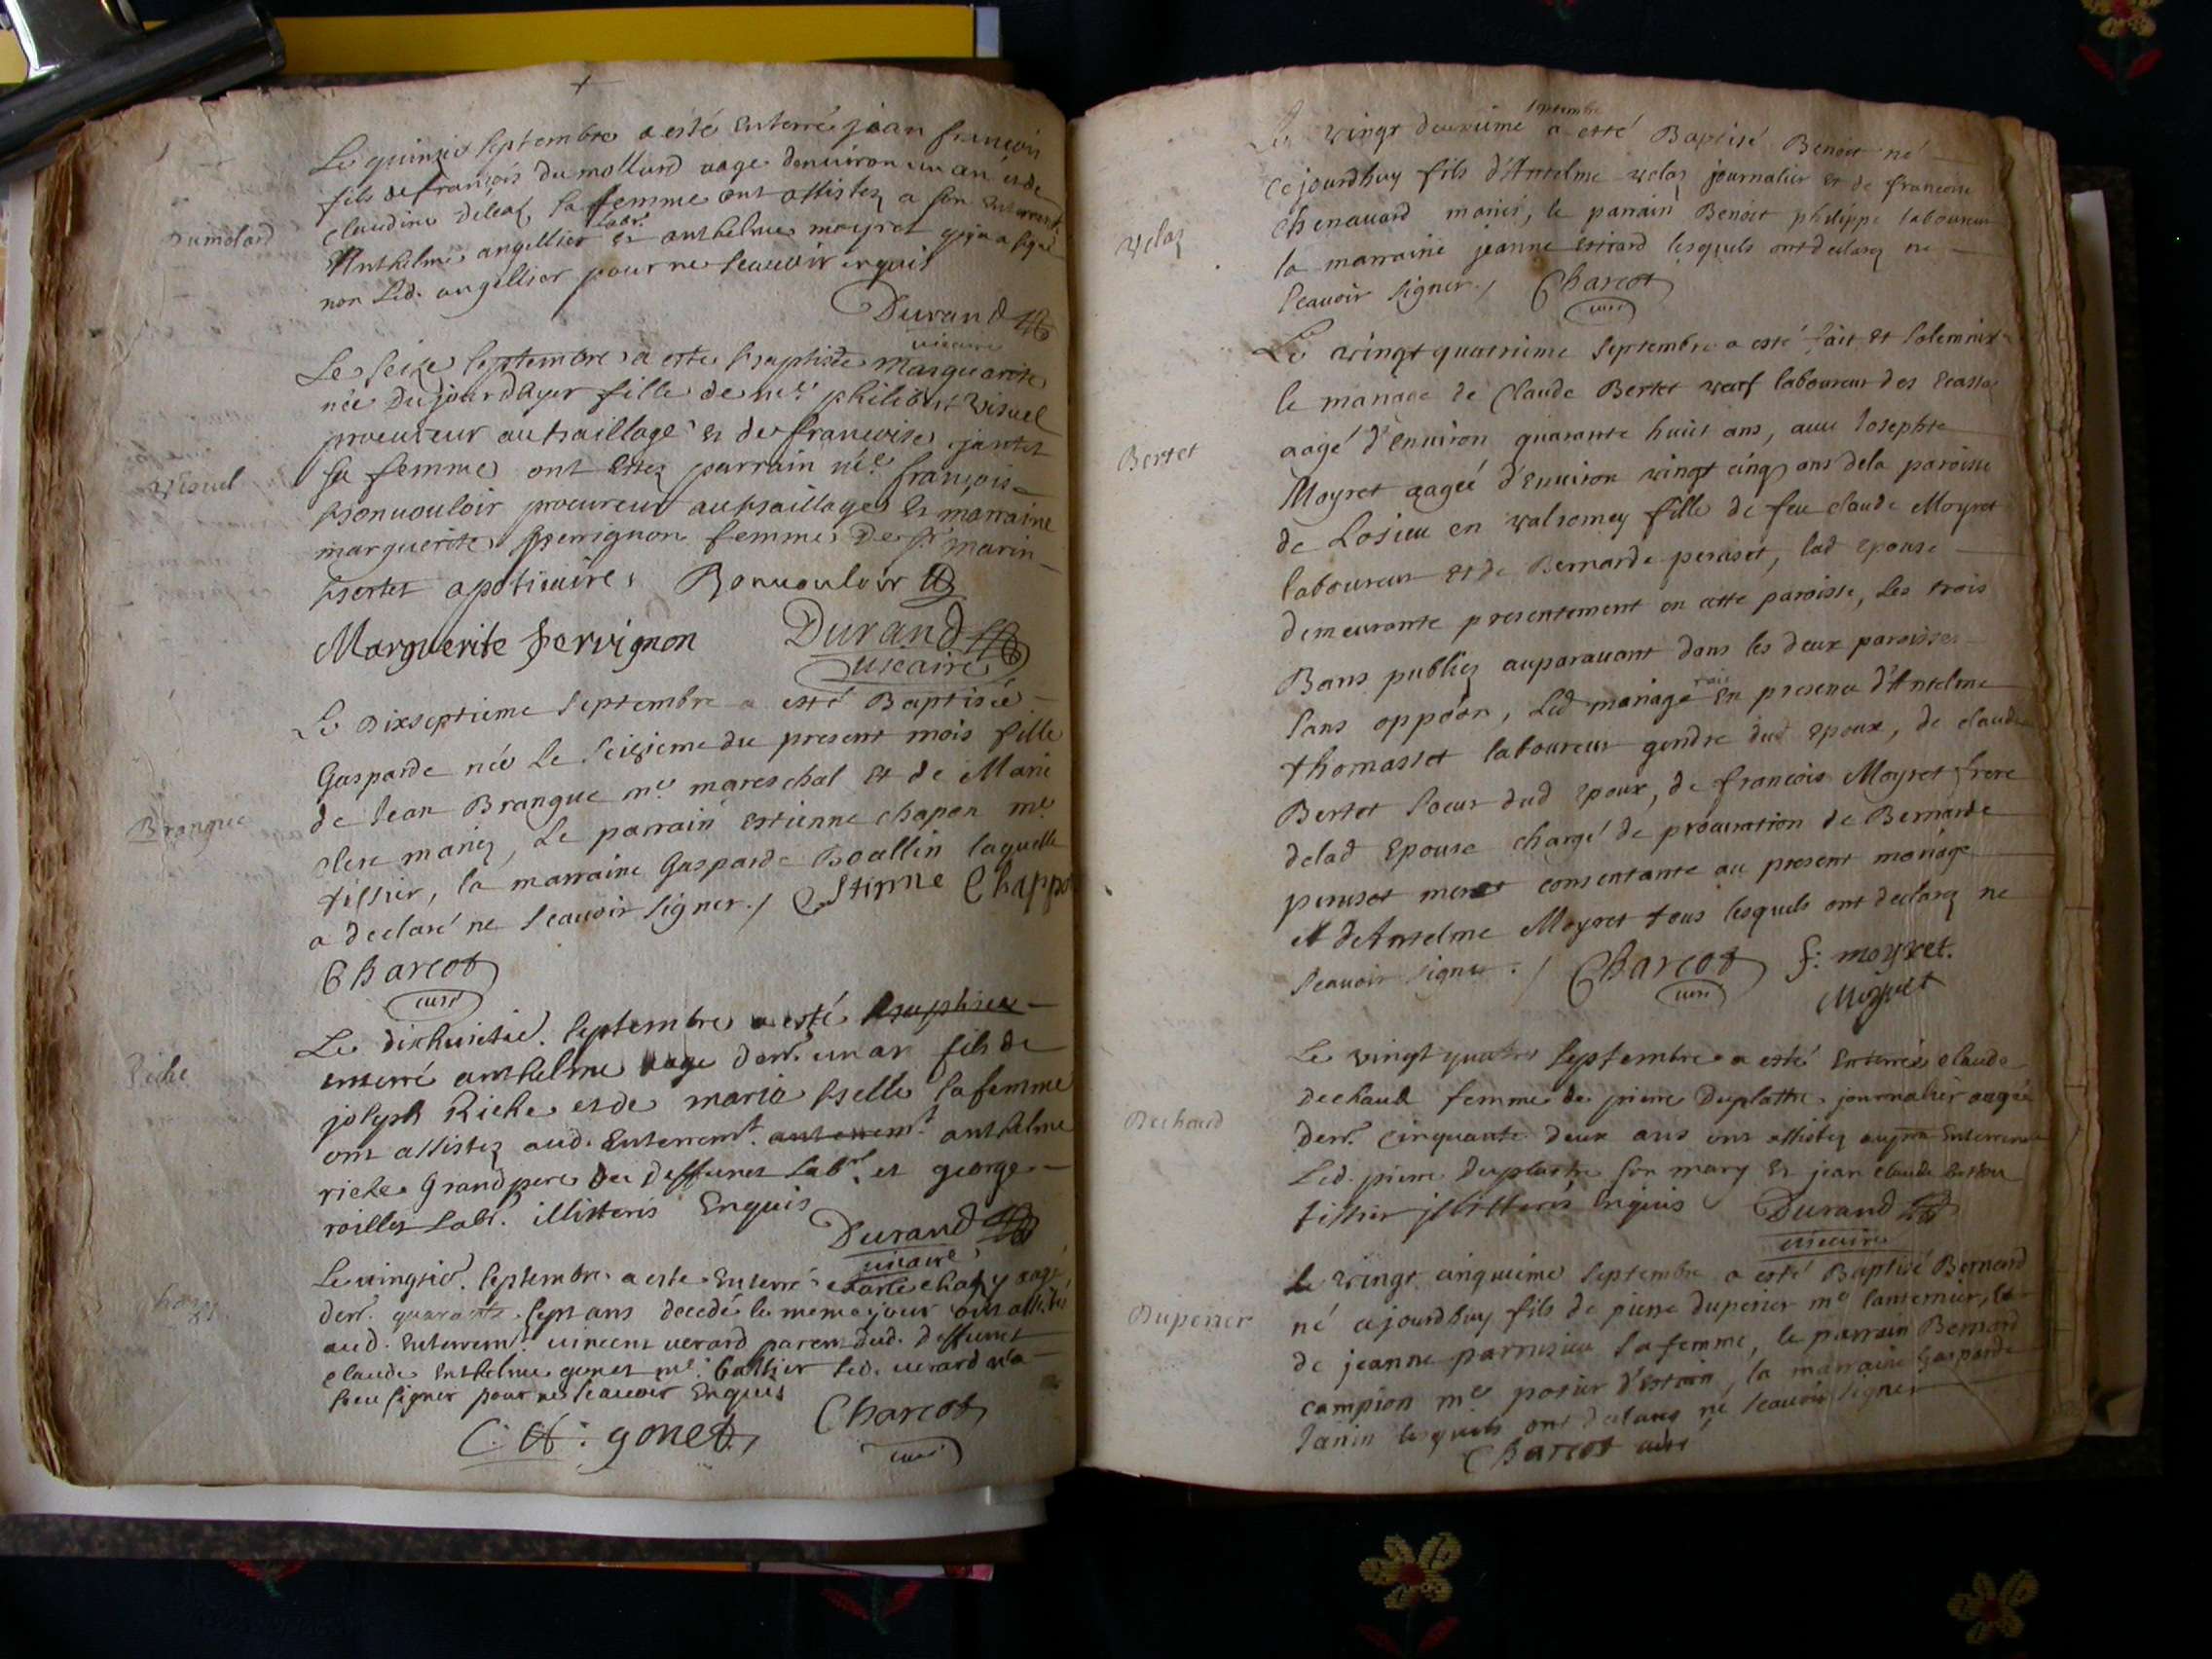 Le quinzie septembre a esté enterré jean françois
fils de françois dumollard aage denuiron un an et de
Dumolard
claudine sa femme ont assistez a son enterremt.
Anthelme angellier labr. et anthelme moyret qui a signé
non led. angellier pour ne scauoir enquis
Durand
vicaire
Le seize septembre a este baptisée marguerite
née du jour dhyer fille de me. philibert visuel
procureur au bailliage et de francoise jantet
sa femme ont estez parrain me. françois
visuel
bonuouloir procureur au bailliage et marraine
marguerite peruignon femme de sr. marin
bertet apoticaire, Bonuouloir
Marguerite peruignon Durand
uicaire
Le Dixseptieme Septembre a esté Baptisée
Gasparde née le seizieme du present mois fille
de Jean Brangue me. mareschal et de Marie
Brangue
clerc mariez, Le parrain estienne chapon me.
tissier, la marraine Gasparde Boallin laquelle
a declaré ne scauoir signer. / Estienne Chappon
Charcot
curé
Le dixhuictie. septembre a esté baptisée
enterré anthelme aage denr. un an fils de
Riche
joseph Riche et de maria belle sa femme
ont assistez aud. enterremt. anterremt. anthelme
riche grand pere du deffunct labr. et george
roillet labr. illitteris Enquis
Durand
uicaire
Le uingtie. septembre a este enterré claude aagé
denr. quarante sept ans decedé le meme jour ont assistés
aud. enterremt. uincent uerard parent dud. deffunct
claude enthelme gonet me. led. uerard n'a
sceu signer pour ne scauoir enquis
C. A: gonet, Charcot
curé
Le vingt deuxieme septembre a esté Baptisé Benoit né
ce jourdhuy fils d'Antelme velaz journalier et de francoise
velaz
chenauard mariés, le parrain Benoit philippe laboureur
la marraine jeanne estirard lesquels ont declarez ne
scauoir signer. / Charcot
curé
Le vingt quatrieme septembre a esté fait et solemnizé
le mariage de Claude Bertet veuf laboureur des ecassaz
Bertet
aagé d'enuiron quarante huict ans, auec Josephte
Moyret aagée d'enuiron vingt cinq ans de la paroisse
de Losieu en valromey fille de feu claude Moyret
laboureur et de Bernarde peruset, lad epouse
demeurante presentement en cette paroisse, Les trois
Bans publiez auparauant dans les deux paroisses
sans oppoõn, Led mariage fait En presence d'Antelme
thomasset laboureur gendre dud epoux, de claude
Bertet soeur dud epoux, de francois Moyret frere
delad Epouse chargé de procuration de Bernarde
peruset mere consentante au present mariage
et de Antelme Moyret tous lesquels ont declarez ne
scauoir signer. / Charcot f: moyret.
curé Moyret
Le vingt quatre septembre a esté enterrée claude
dechaud femme de pierre Duplattre journalier aagée
Dechaud
denr. cinquante deux ans ont assistez enterrement
Led. pierre duplastre son mary et jean claude
tissier illitteris enquis Durand
uicaire
Le vingt cinquieme septembre a esté Baptisé Bernard
né ce jourdhuy fils de pierre duperier me lanternier, et
Duperier
de jeanne parrusieu sa femme, le parrain Bernard
campion me potier d'estain, la marraine Gasparde
Janin lesquels ont declarez ne scauoir signer
Charcot curé